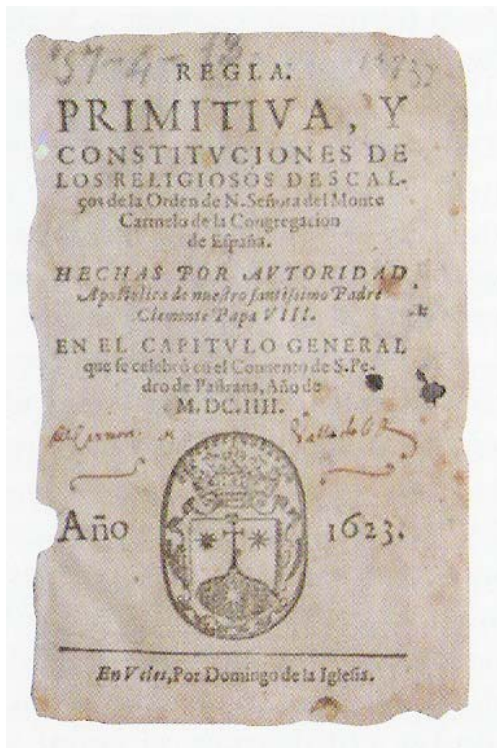 57-4-13
REGLA.
PRIMITIVA, Y
CONSTITVCIONES DE
LOS RELIGIOSOS DESCAL-
ços de la Orden de N. Señora del Monte
Carmelo de la Congregacion
de España.
HECHAS POR AVTORIDAD
Apostolica de nuestro santissimo Padre
Clemente Papa VIII.
EN EL CAPITVLO GENERAL
que se celebrò en el Conuento de S. Pe-
dro de Pastrana, Año de
M. DC. IIII.
Año 1623.
En Veles, Por Domingo de la Iglesia.